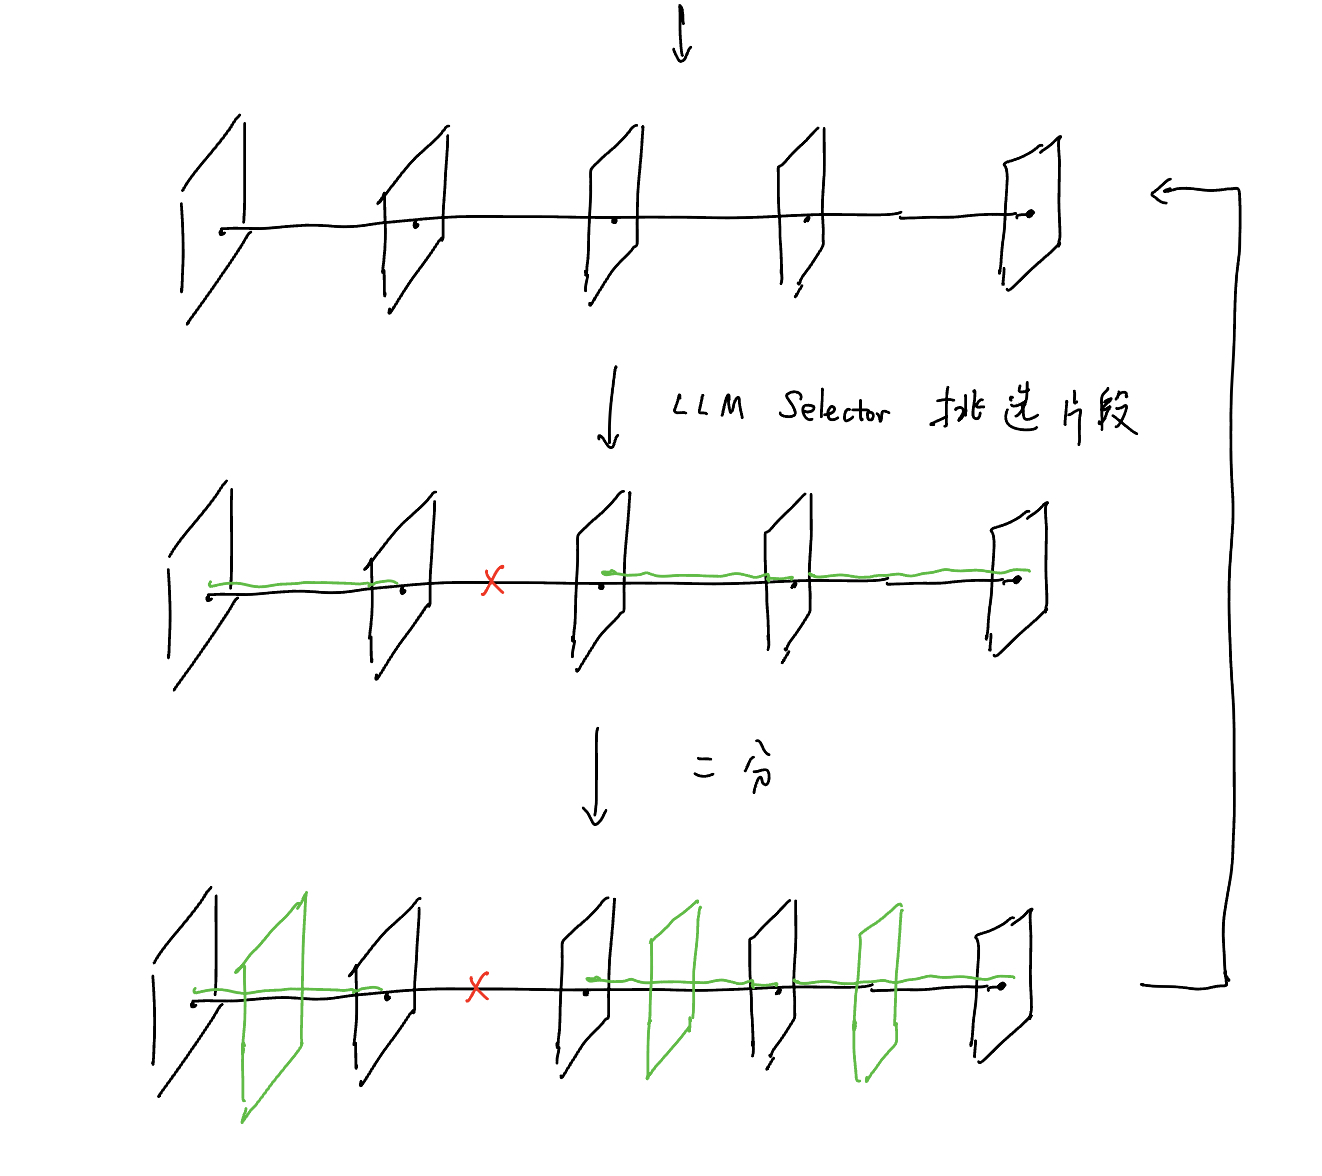 LLM Selector 挑选片段
二分